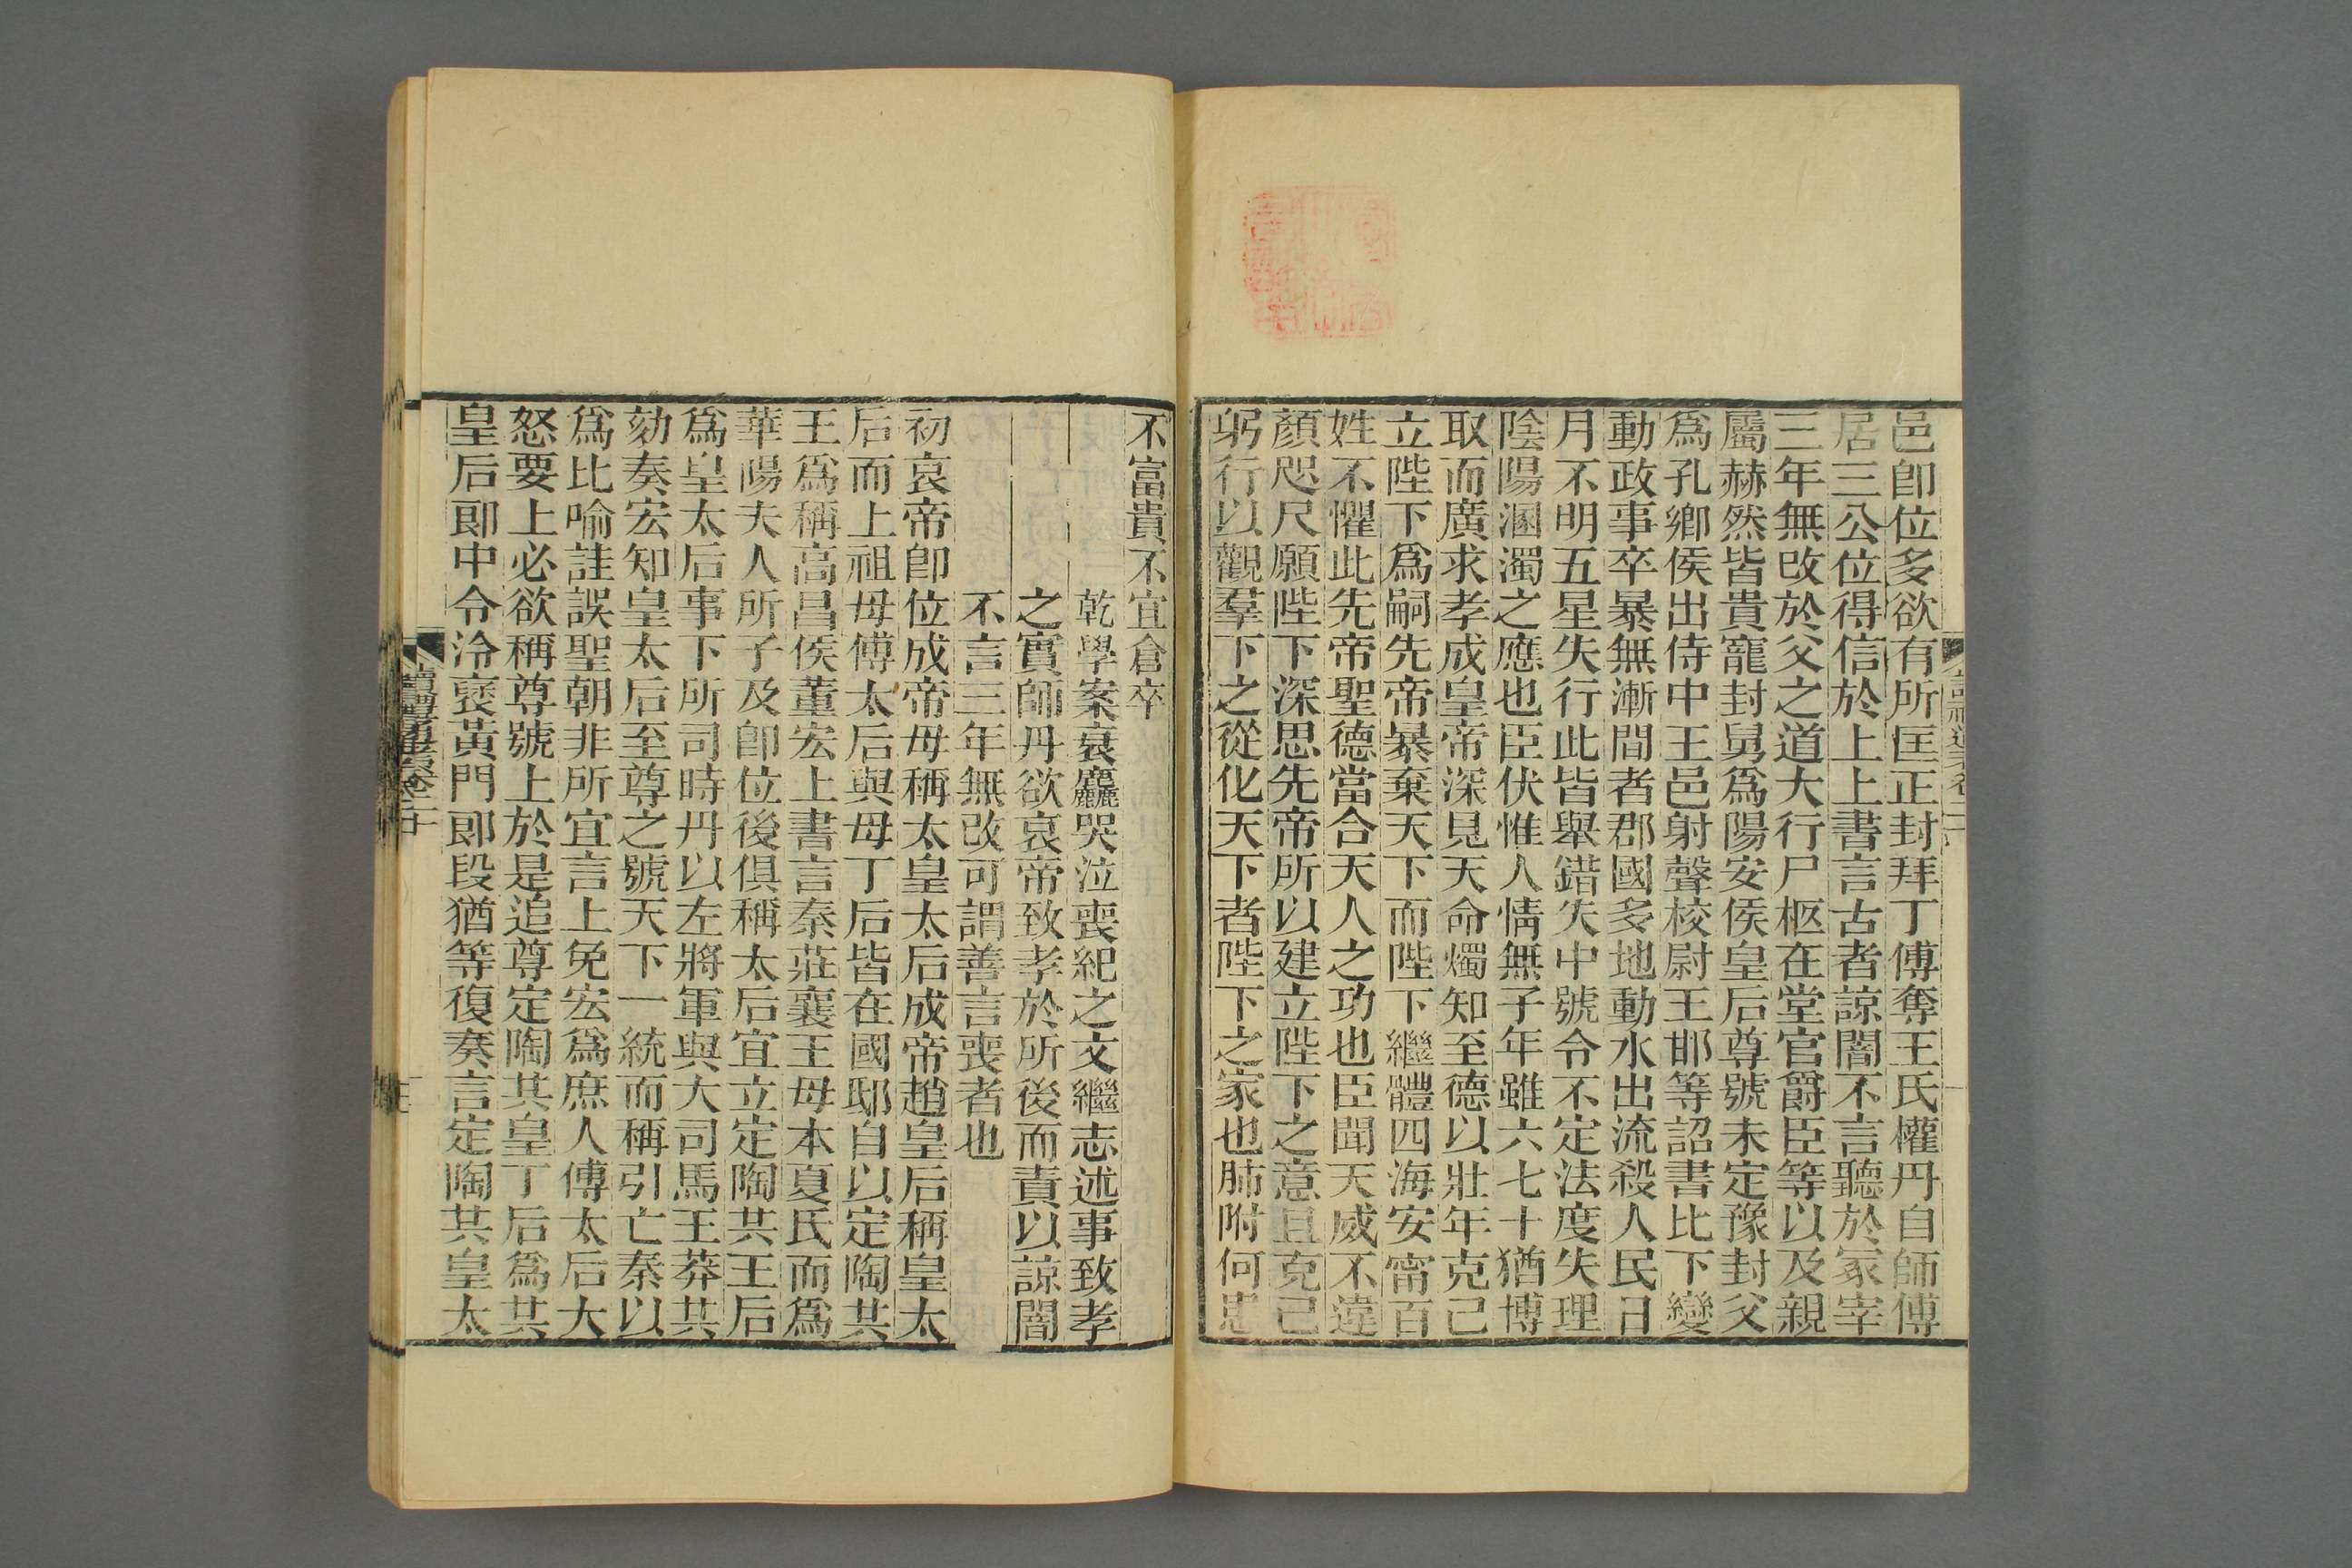 邑卽位多欲有所匡正封拜丁傅奪王氏權丹自師傅
居三公位得信於上上書言古者諒闇不言聽於冢宰
三年無改於父之道大行尸柩在堂官爵臣等以及親
屬赫然皆貴寵封舅爲陽安侯皇后尊號未定豫封父
爲孔鄉侯出侍中王邑射聲校尉王邯等詔書比下變
動政事卒暴無漸間者郡國多地動水出流殺人民日
月不明五星失行此皆舉錯失中號令不定法度失理
陰陽溷濁之應也臣伏惟人情無子年雖六七十猶博
取而廣求孝成皇帝深見天命燭知至德以壯年克己
立陛下爲嗣先帝暴棄天下而陛下繼體四海安甯百
姓不懼此先帝聖德當合天人之功也臣聞天威不違
顏咫尺願陛下深思先帝所以建立陛下之意且克己
躬行以觀羣下之從化天下者陛下之家也肺附何患
不富貴不宜倉卒
乾學案衰麤哭泣喪紀之文繼志述事致孝
之實師丹欲哀帝致孝於所後而責以諒闇
不言三年無改可謂善言喪者也
初哀帝卽位成帝母稱太皇太后成帝趙皇后稱皇太
后而上祖母傅太后與母丁后皆在國邸自以定陶共
王爲稱高昌侯董宏上書言秦莊襄王母本夏氏而爲
華陽夫人所子及卽位後俱稱太后宜立定陶共王后
爲皇太后事下所司時丹以左將軍與大司馬王莽共
劾奏宏知皇太后至尊之號天下一統而稱引亡秦以
爲比喻詿誤聖朝非所宜言上免宏爲庶人傅太后大
怒要上必欲稱尊號上於是追尊定陶共皇丁后爲共
皇后郎中令泠褒黃門郎段猶等復奏言定陶共皇太
讀禮通考卷二十